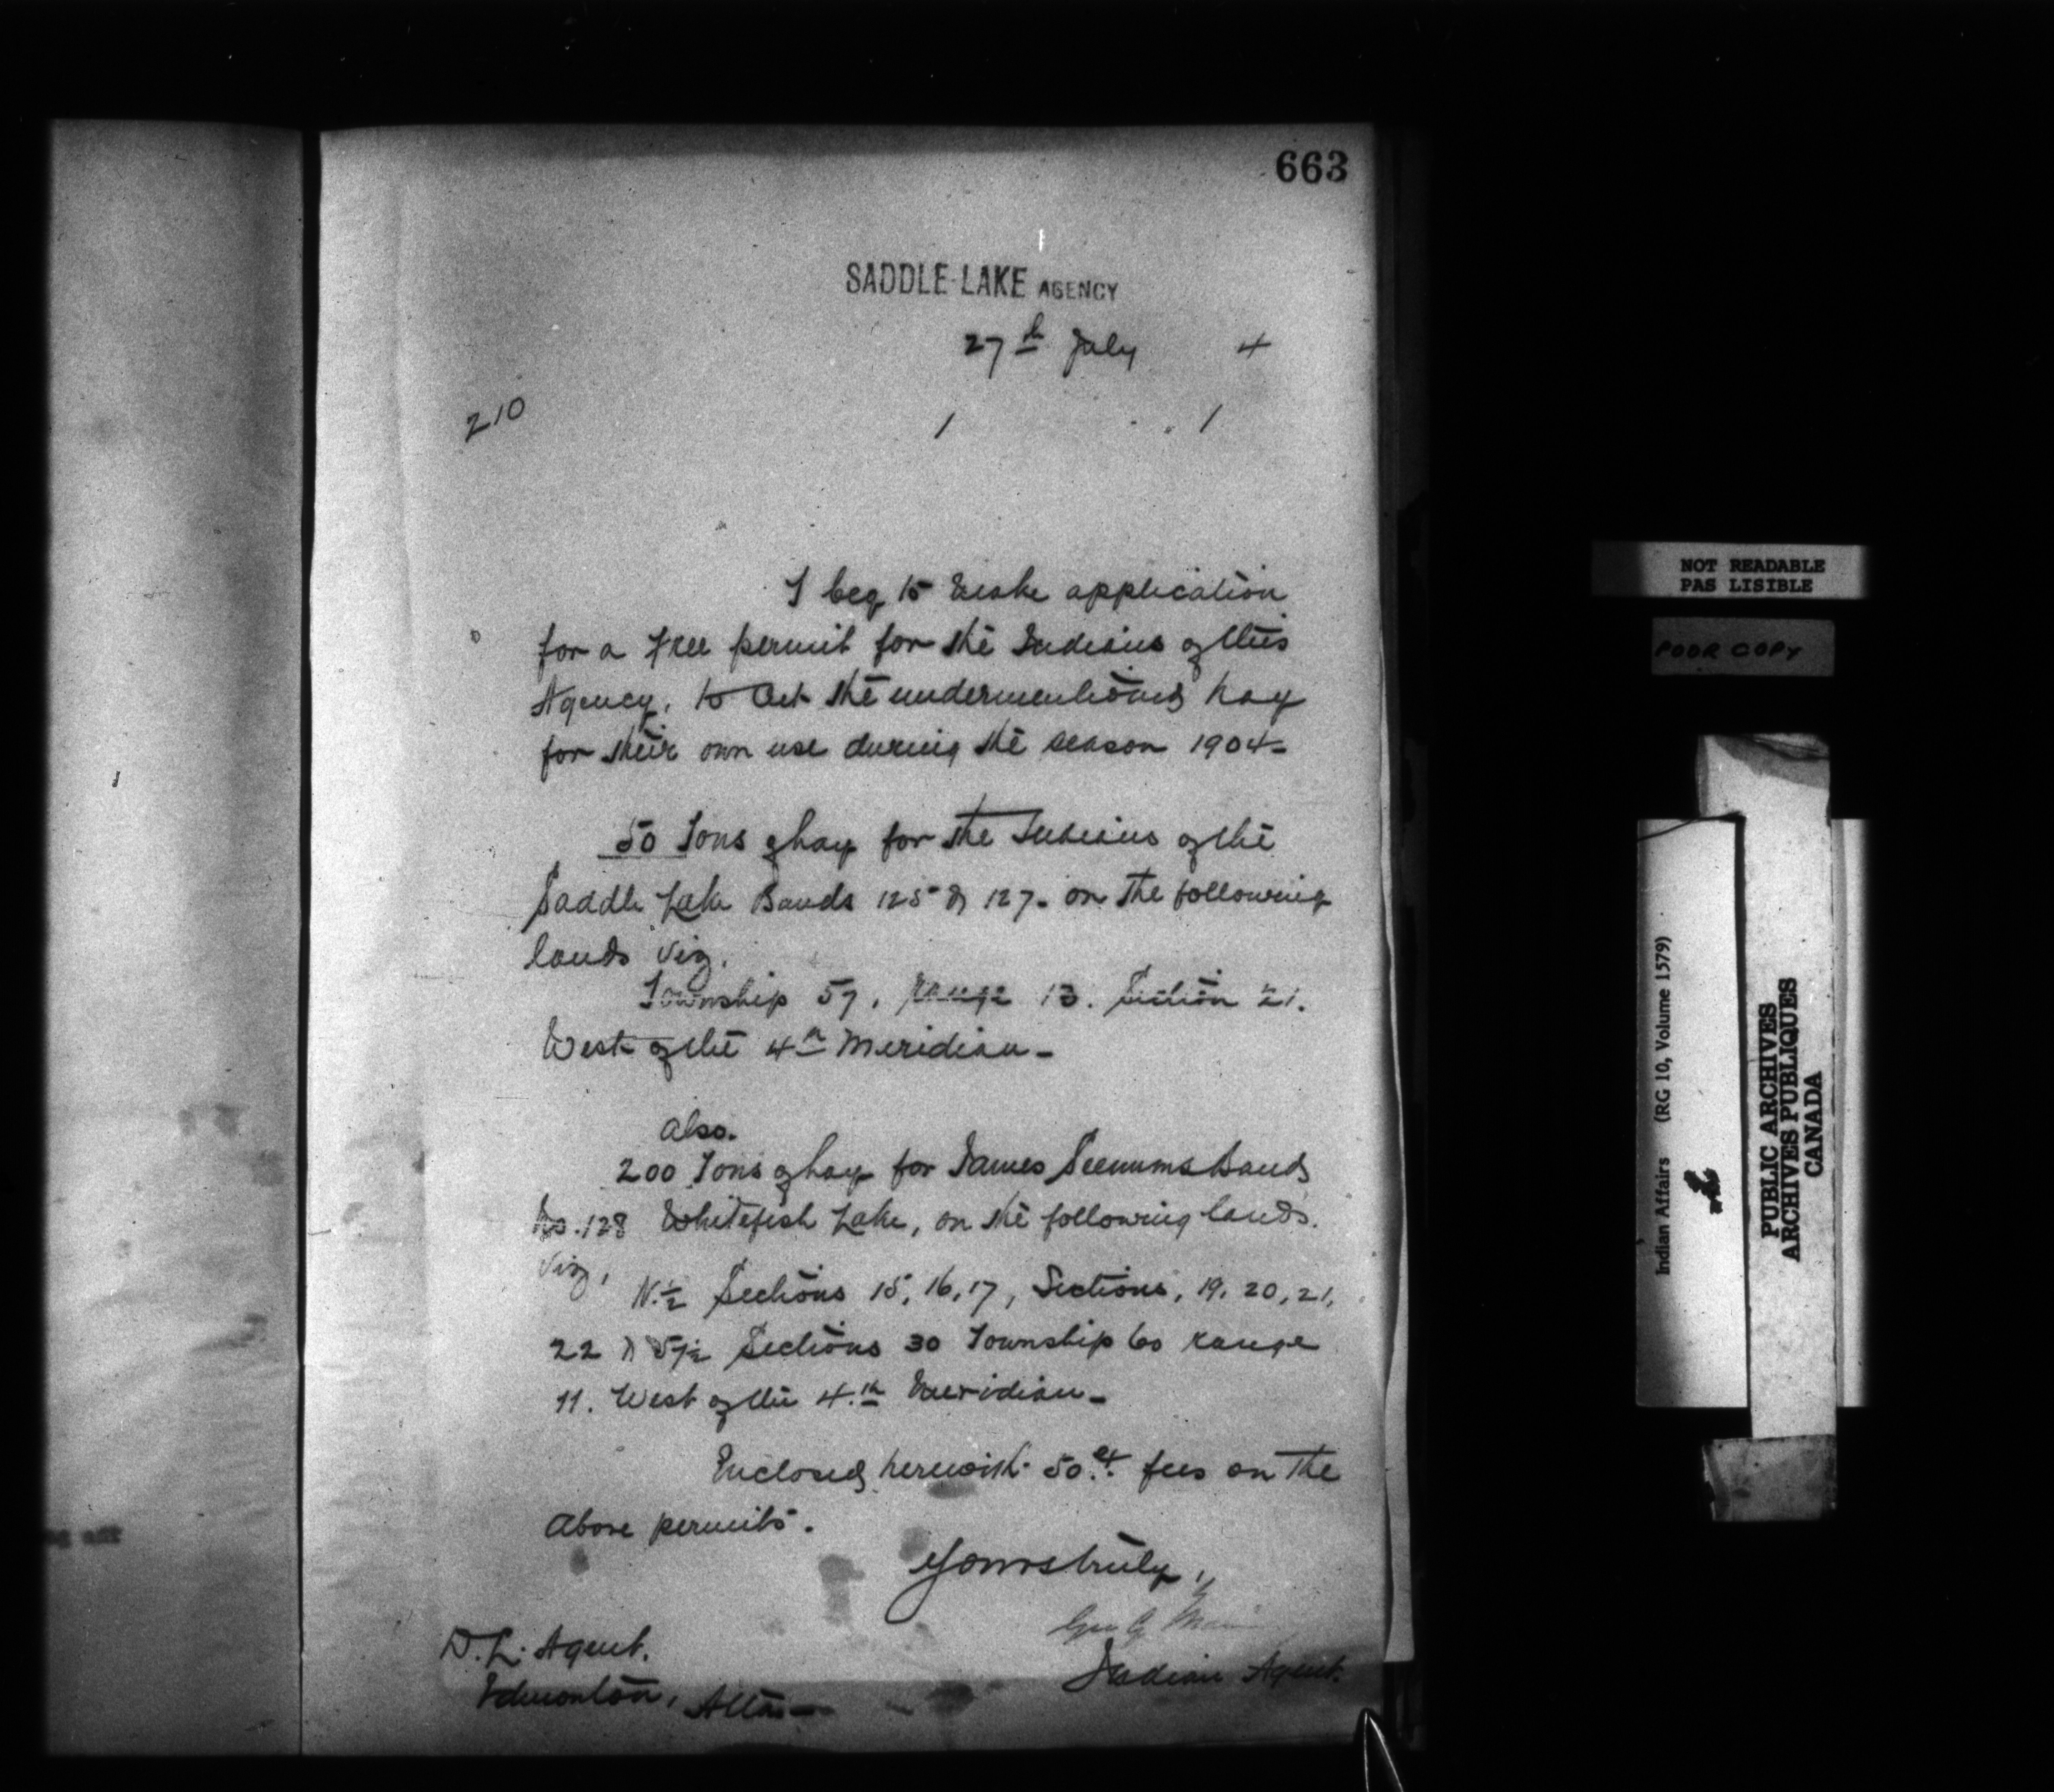 663
SADDLE LAKE AGENCY
27th July 4
210
1 1
I beg to make application
for a free permit for the Indians of this
Agency, to cut the undermentioned hay
for their own use during the season 1904-
50 Tons of hay for the Indians of the
Saddle Lake Bands 125 & 127- on the following
lands viz,
Township 57, range 13. Section 21.
West of the 4th Meridian-
also.
200 Tons of hay for James Seenums Band
No. 128 Whitefish Lake, on the following lands.
viz,
N.½ Sections 15, 16, 17, Sections, 19, 20, 21,
22 & S½ Sections 30 Township 60 range
11. West of the 4th Meridian-
Enclosed herewith 50ct fees on the
above permits.
Yours truly,
Geo G Mann
Indian Agent.
D. L. Agent.
Edmonton, Alta-
NOT READABLE
PAS LISIBLE
POOR COPY
Indian Affairs (RG 10, Volume 1579)
PUBLIC ARCHIVES
ARCHIVES PUBLIQUES
CANADA